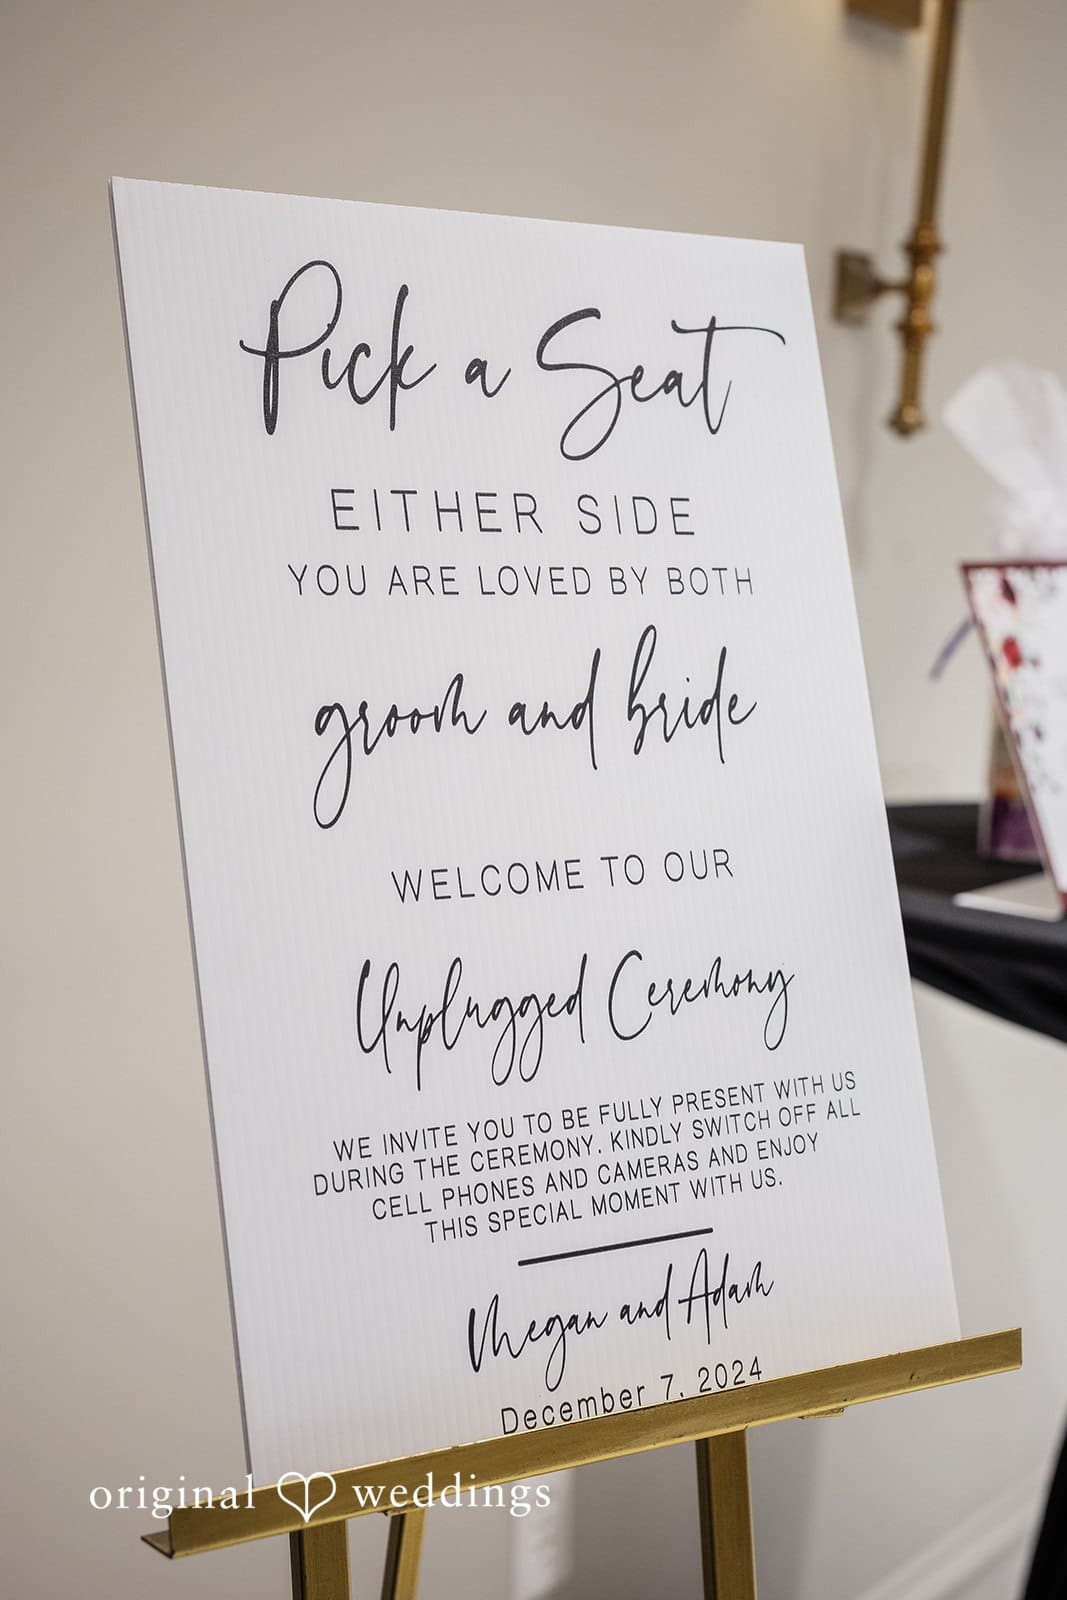 Pick a Seat
EITHER SIDE
YOU ARE LOVED BY BOTH
groom and bride
WELCOME TO OUR
Unplugged Ceremony
WE INVITE YOU TO BE FULLY PRESENT WITH US
DURING THE CEREMONY. KINDLY SWITCH OFF ALL
CELL PHONES AND CAMERAS AND ENJOY
THIS SPECIAL MOMENT WITH US.
Megan and Adam
December 7, 2024
original weddings